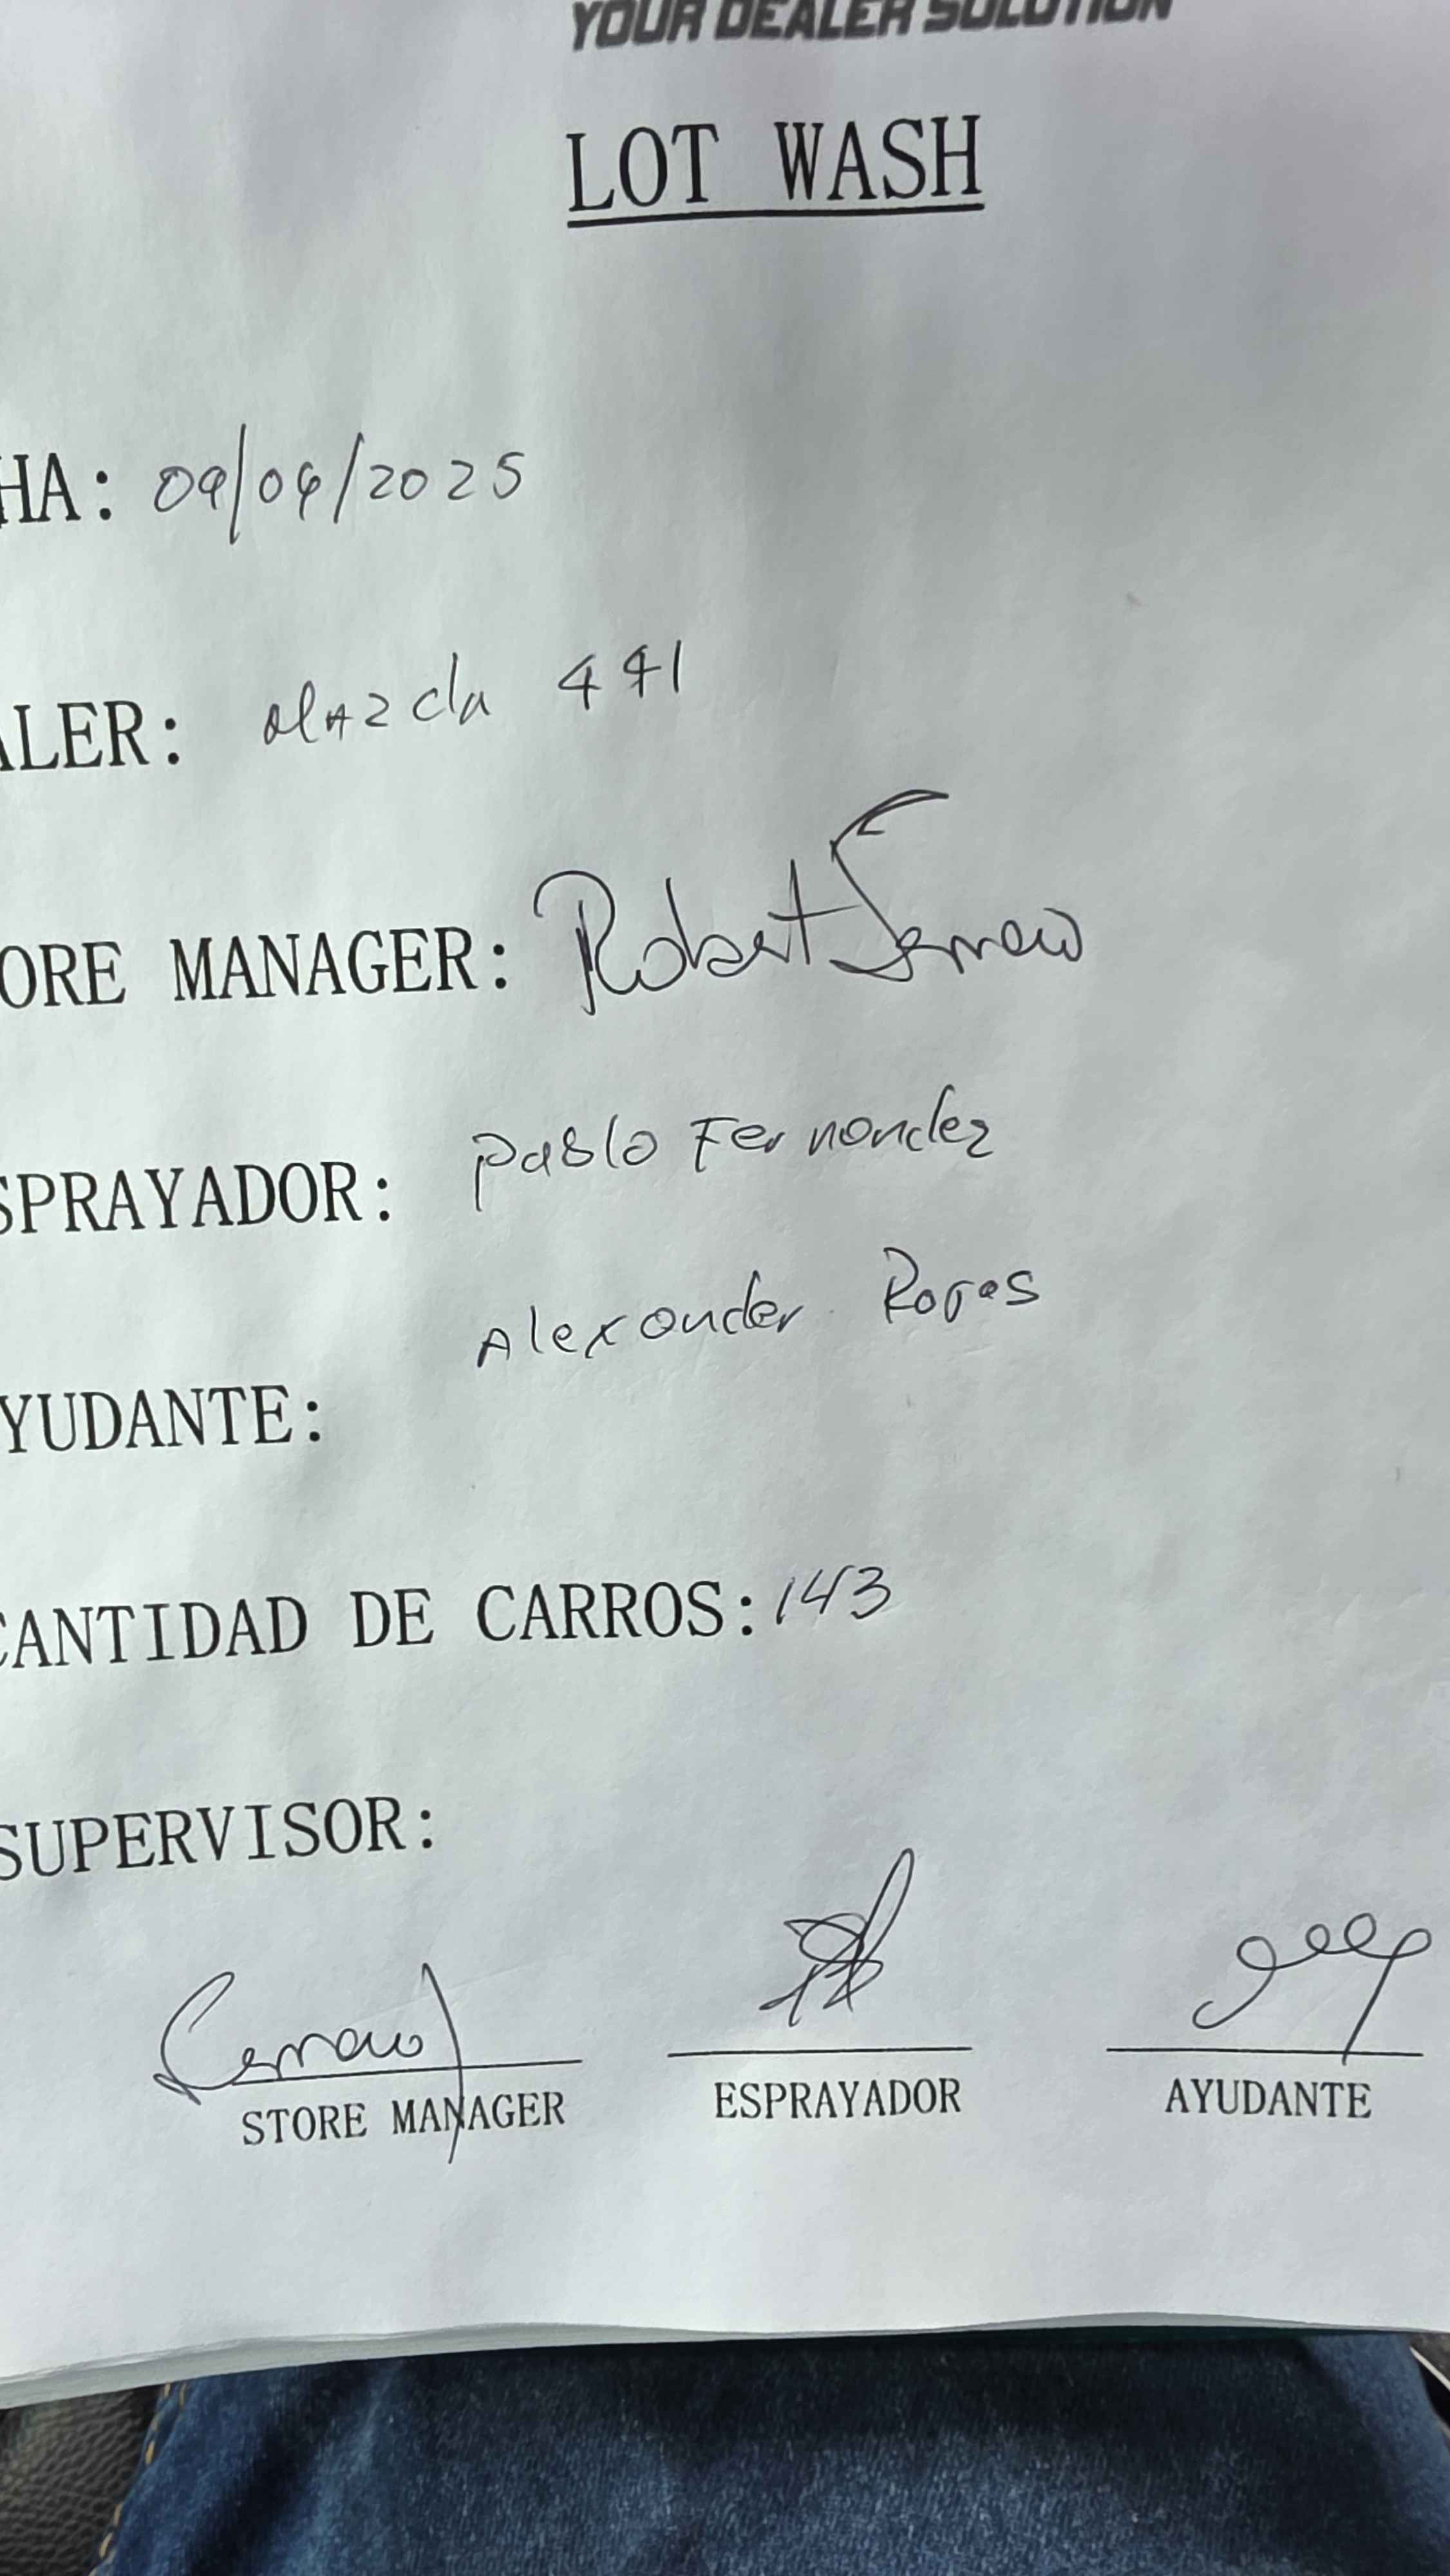 YOUR DEALER SOLUTION
LOT WASH
HA: 09/04/2025
ALER: Mazda 441
ORE MANAGER: Robert Serrano
SPRAYADOR: Pablo Fernandez
Alexander Rojas
YUDANTE:
CANTIDAD DE CARROS: 143
SUPERVISOR:
Serrano
STORE MANAGER ESPRAYADOR AYUDANTE